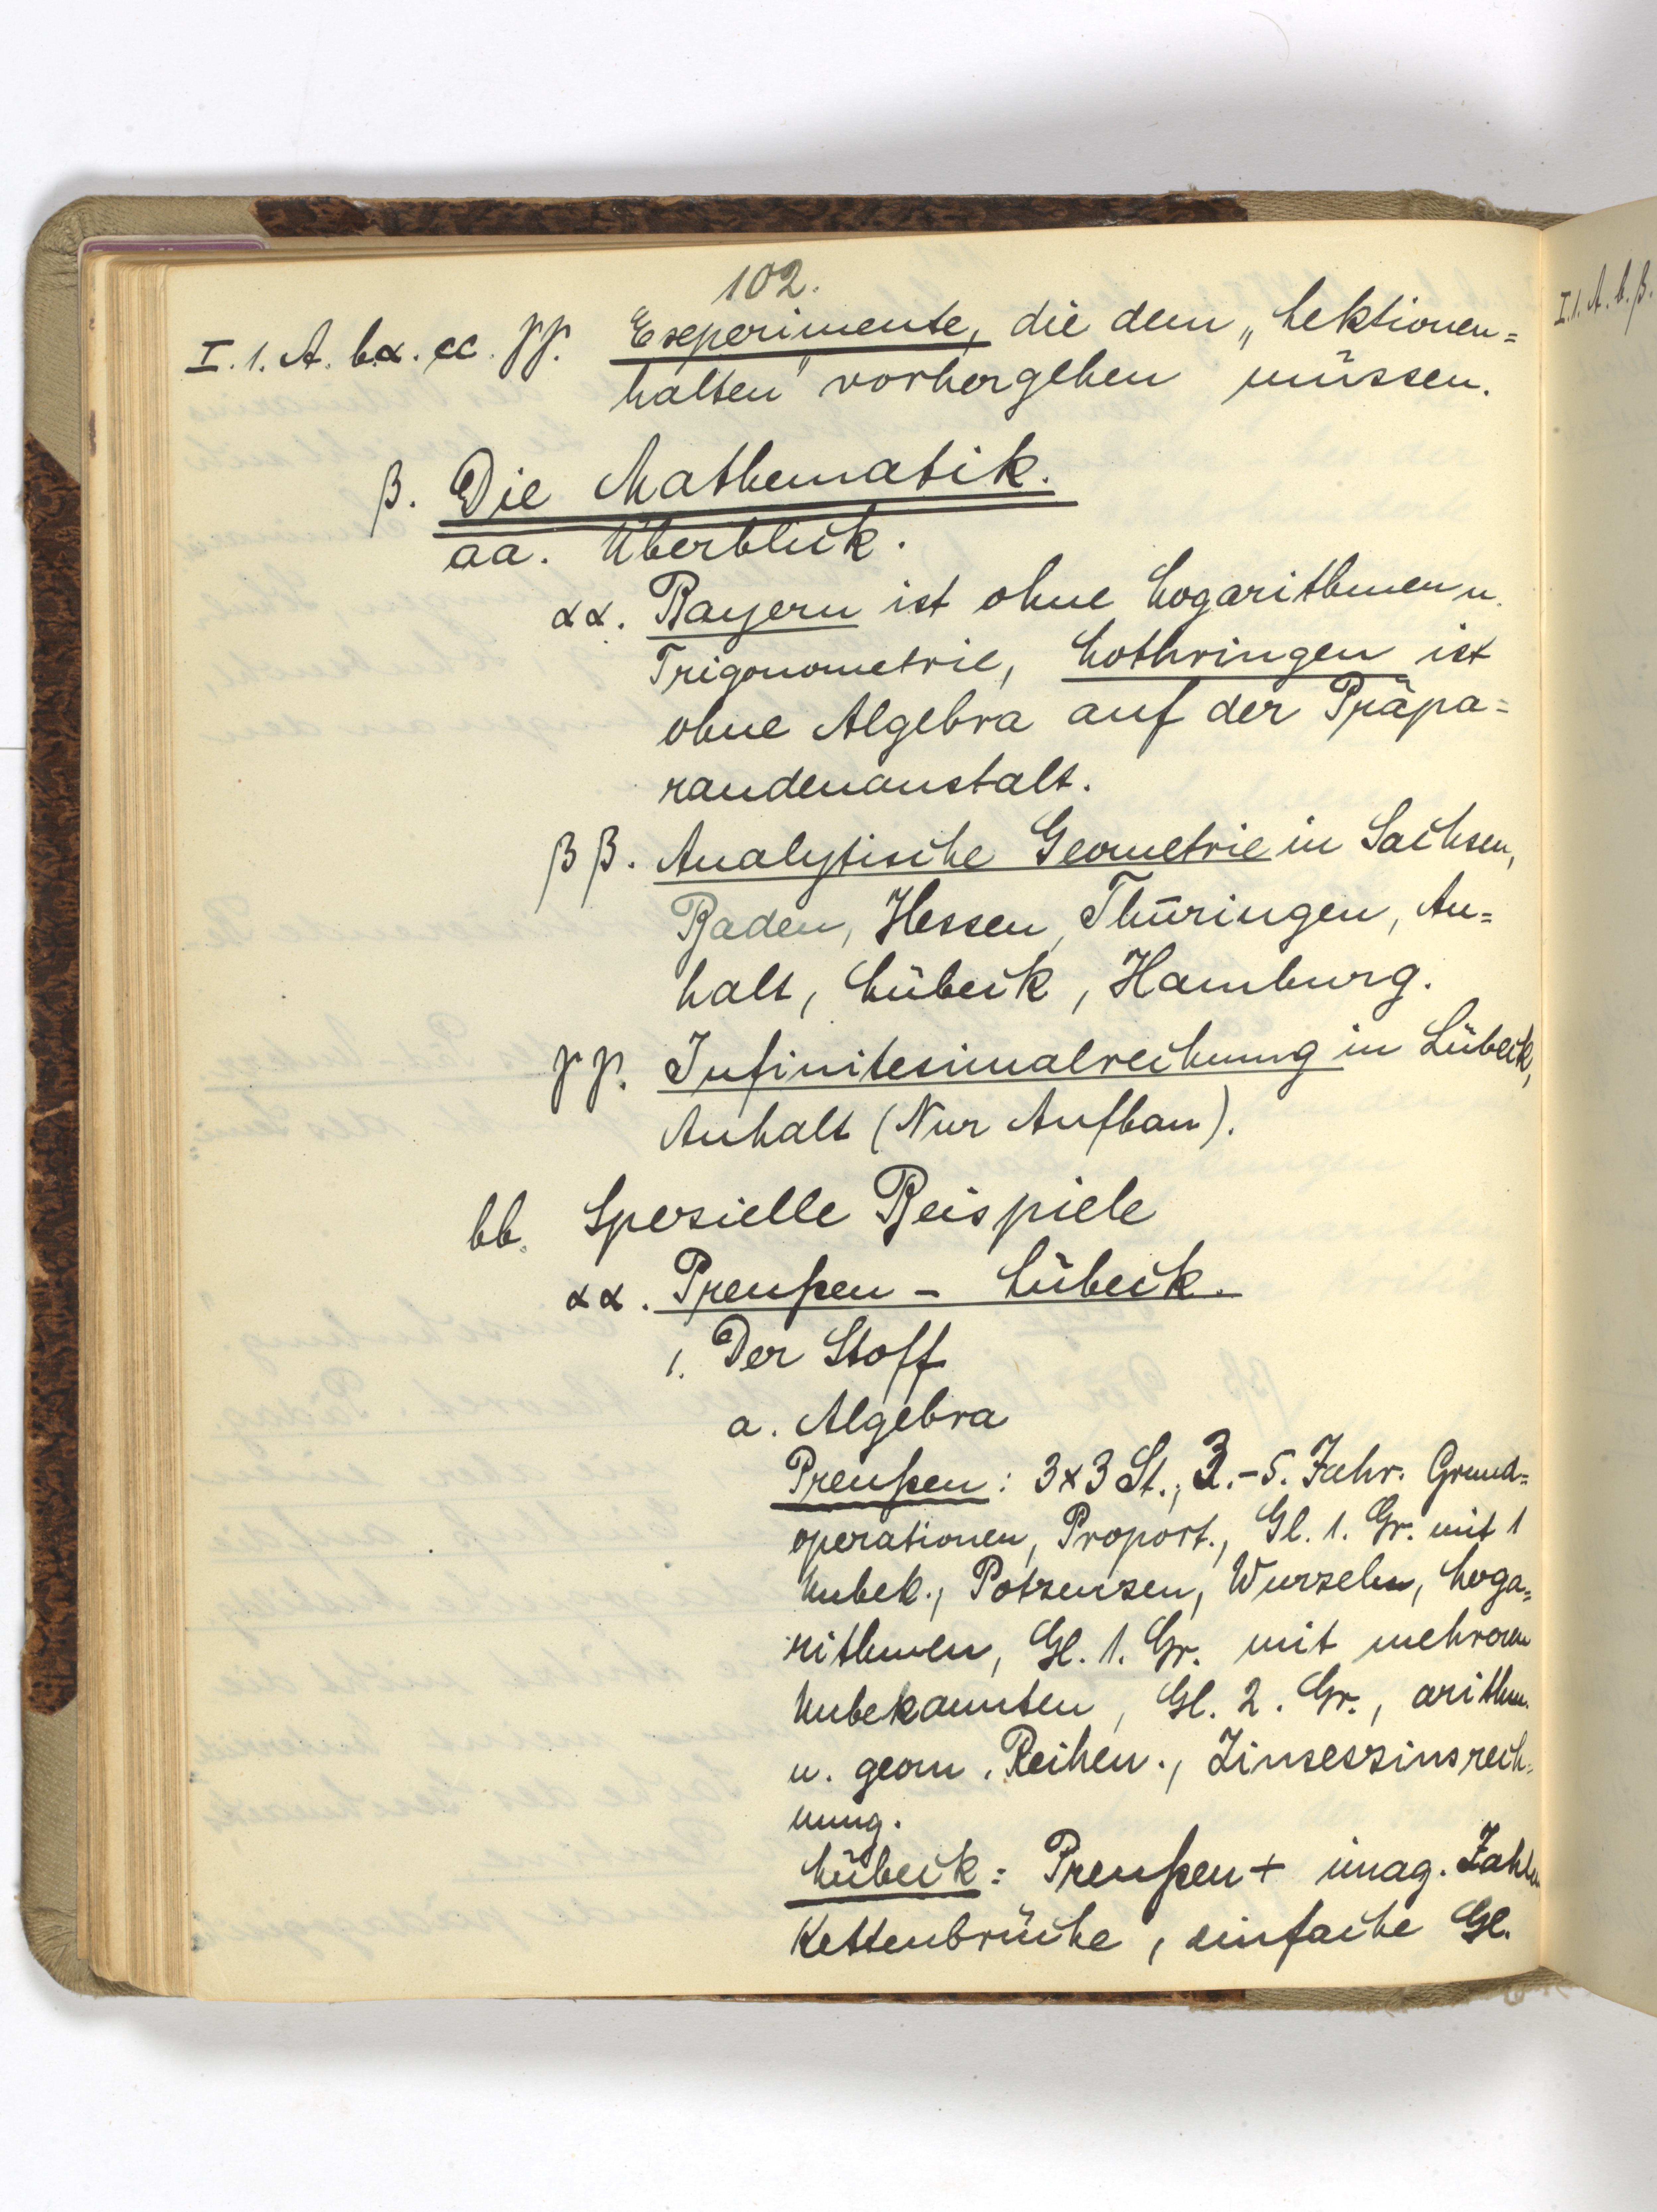 102.
I. 1. A. b.α. cc. γγ. Experimente, die dem „Lektionen=
halten" vorhergehen müssen.
β. Die Mathematik.
aa. Überblick.
αα. Bayern ist ohne Logarithmen u.
Trigonometrie, Lothringen ist
ohne Algebra auf der Präpa=
randenanstalt.
ββ. Analytische Geometrie in Sachsen,
Baden, Hessen, Thüringen, An=
halt, Lübeck, Hamburg.
γγ. Infinitesimalrechnung in Lübeck,
Anhalt (Nur Aufbau).
bb. Spezielle Beispiele
αα. Preußen – Lübeck.
1. Der Stoff
a. Algebra
Preußen: 3x3 St., 3.-5. Jahr. Grund=
operationen, Proport., Gl. 1. Gr. mit 1
Unbek., Potzenzen, Wurzeln, Loga=
rithmen, Gl. 1. Gr. mit mehreren
Unbekannten, Gl. 2. Gr., arithm.
u. geom. Reihen., Zinseszinsrech=
nung.
Lübeck: Preußen + imag. Zahlen
Kettenbrüche, einfache Gl.
I. 1. A. b. β.